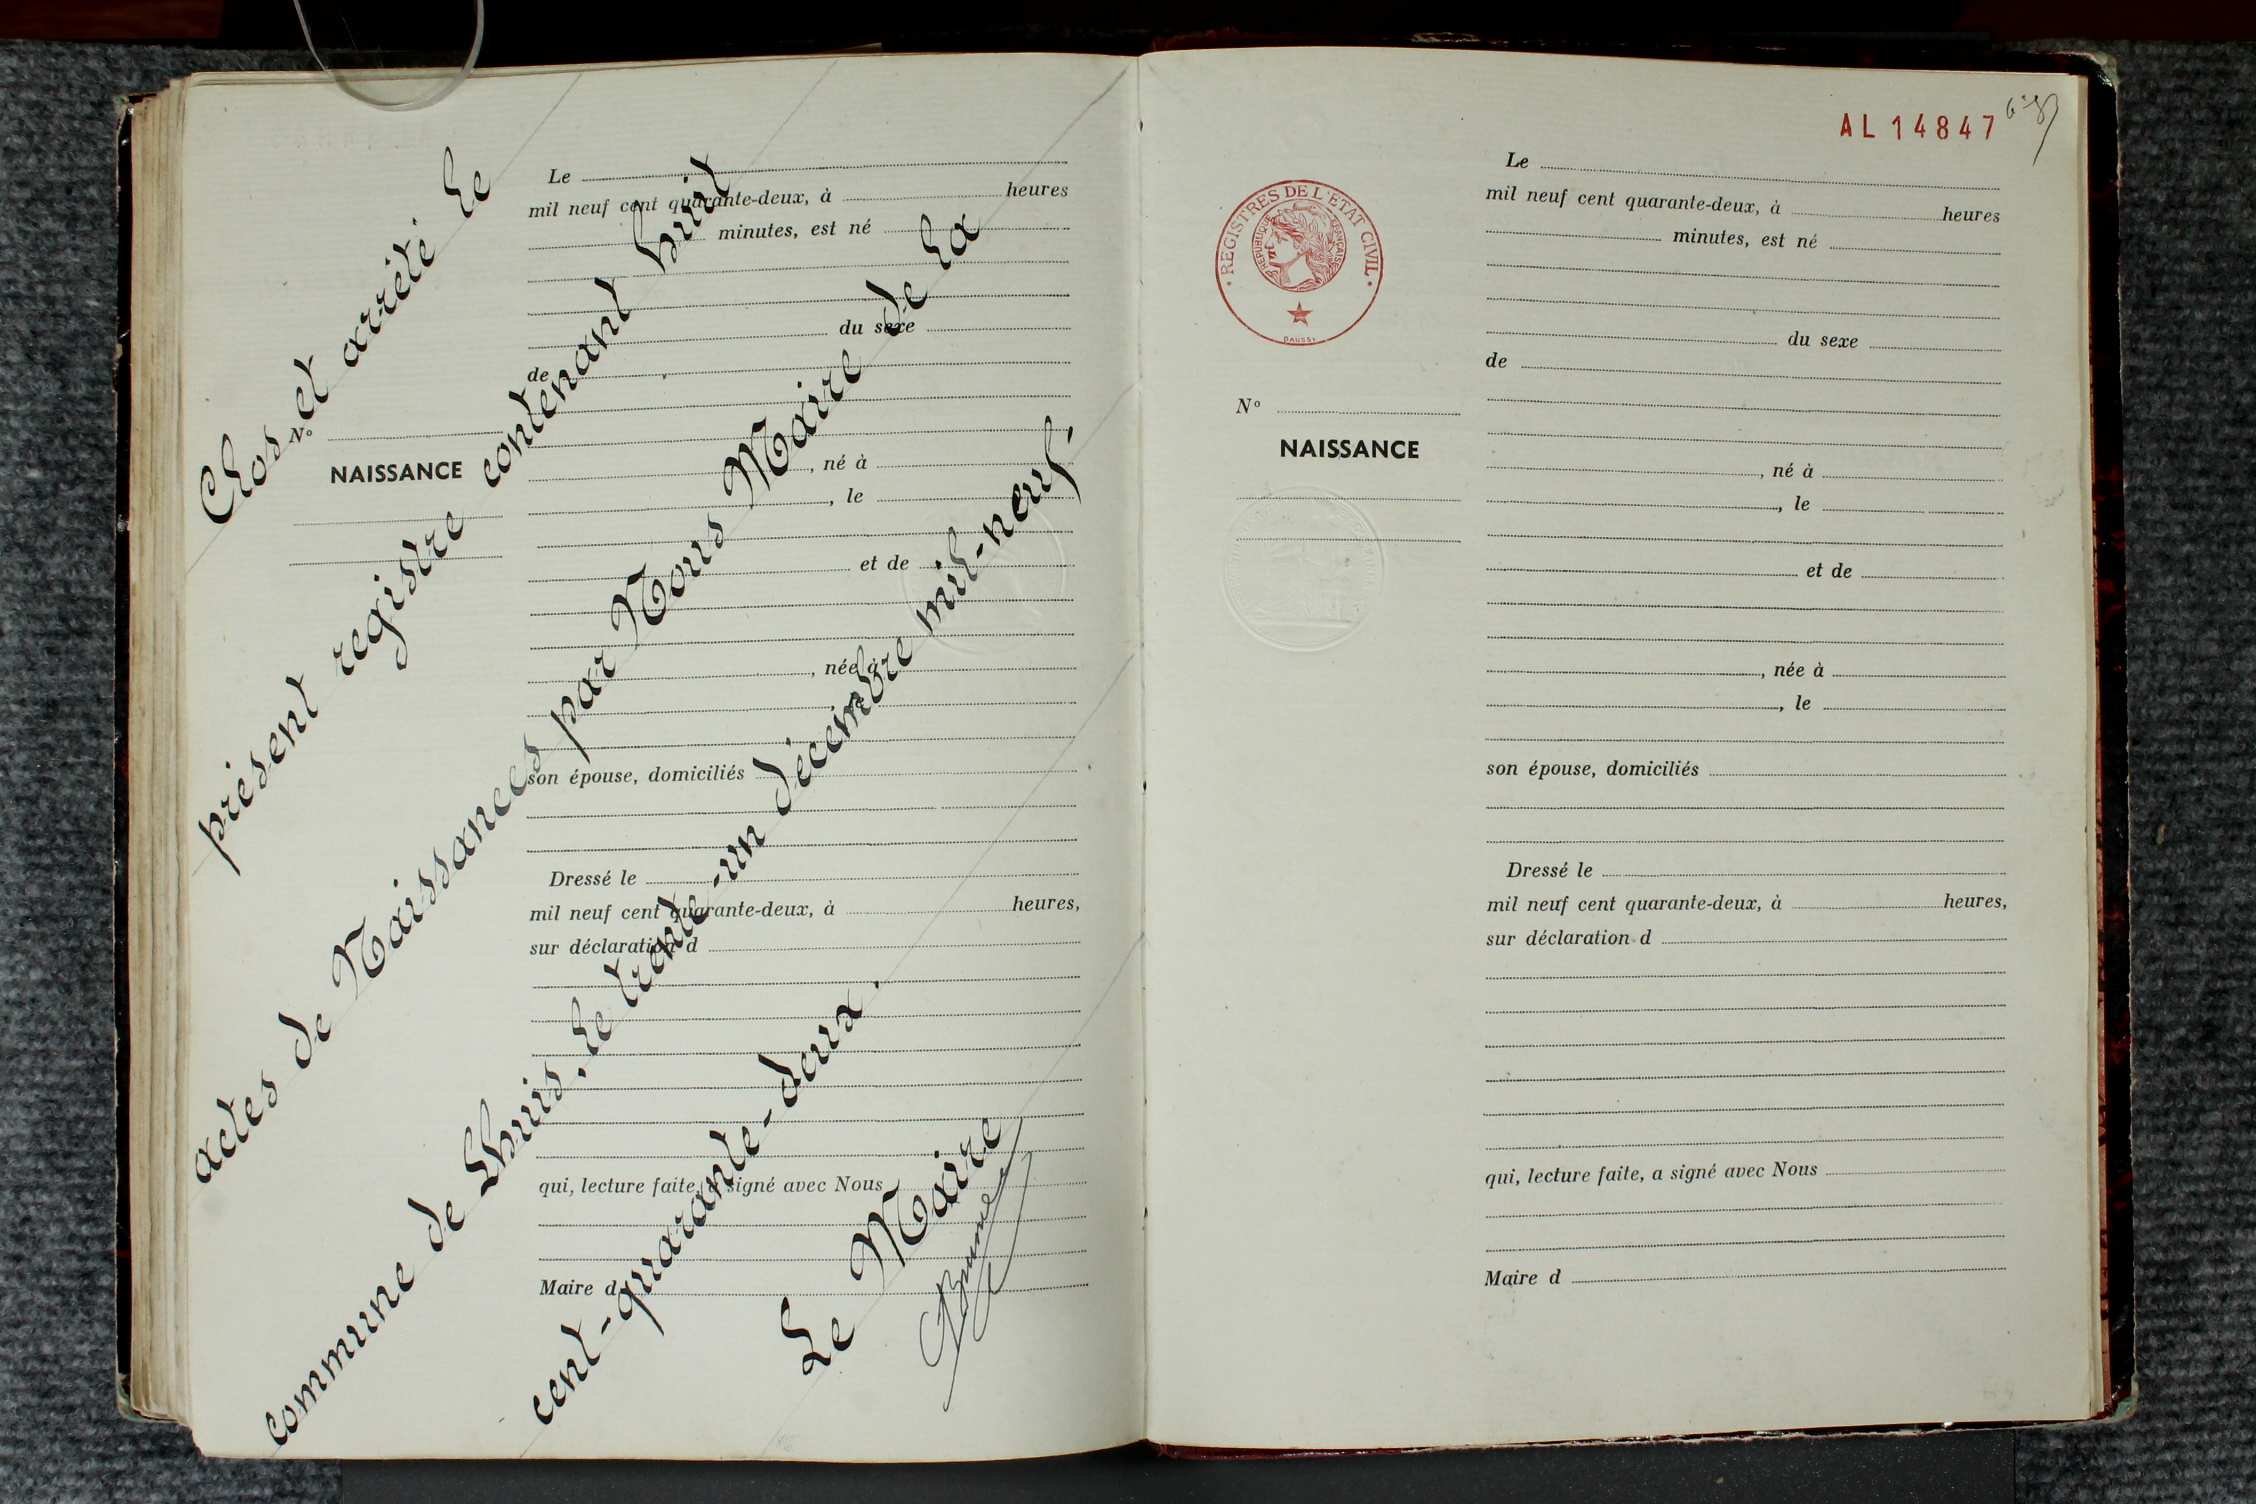 Clos et arrêté le
présent registre contenant huit
actes de Naissances par Nous Maire de la
commune de Lhuis, le trente-un décembre mil-neuf-
cent-quarante-deux.
Le Maire
Le
mil neuf cent quarante-deux, à heures
minutes, est né
du sexe
de
N°
NAISSANCE
, né à
, le
et de
, née à
, le
son épouse, domiciliés
Dressé le
mil neuf cent quarante-deux, à heures,
sur déclaration d
qui, lecture faite, a signé avec Nous
Maire d
AL 14847
REGISTRES DE L'ETAT CIVIL
REPUBLIQUE FRANÇAISE
DAUSSY
Le
mil neuf cent quarante-deux, à heures
minutes, est né
du sexe
de
N°
NAISSANCE
, né à
, le
et de
, née à
, le
son épouse, domiciliés
Dressé le
mil neuf cent quarante-deux, à heures,
sur déclaration d
qui, lecture faite, a signé avec Nous
Maire d